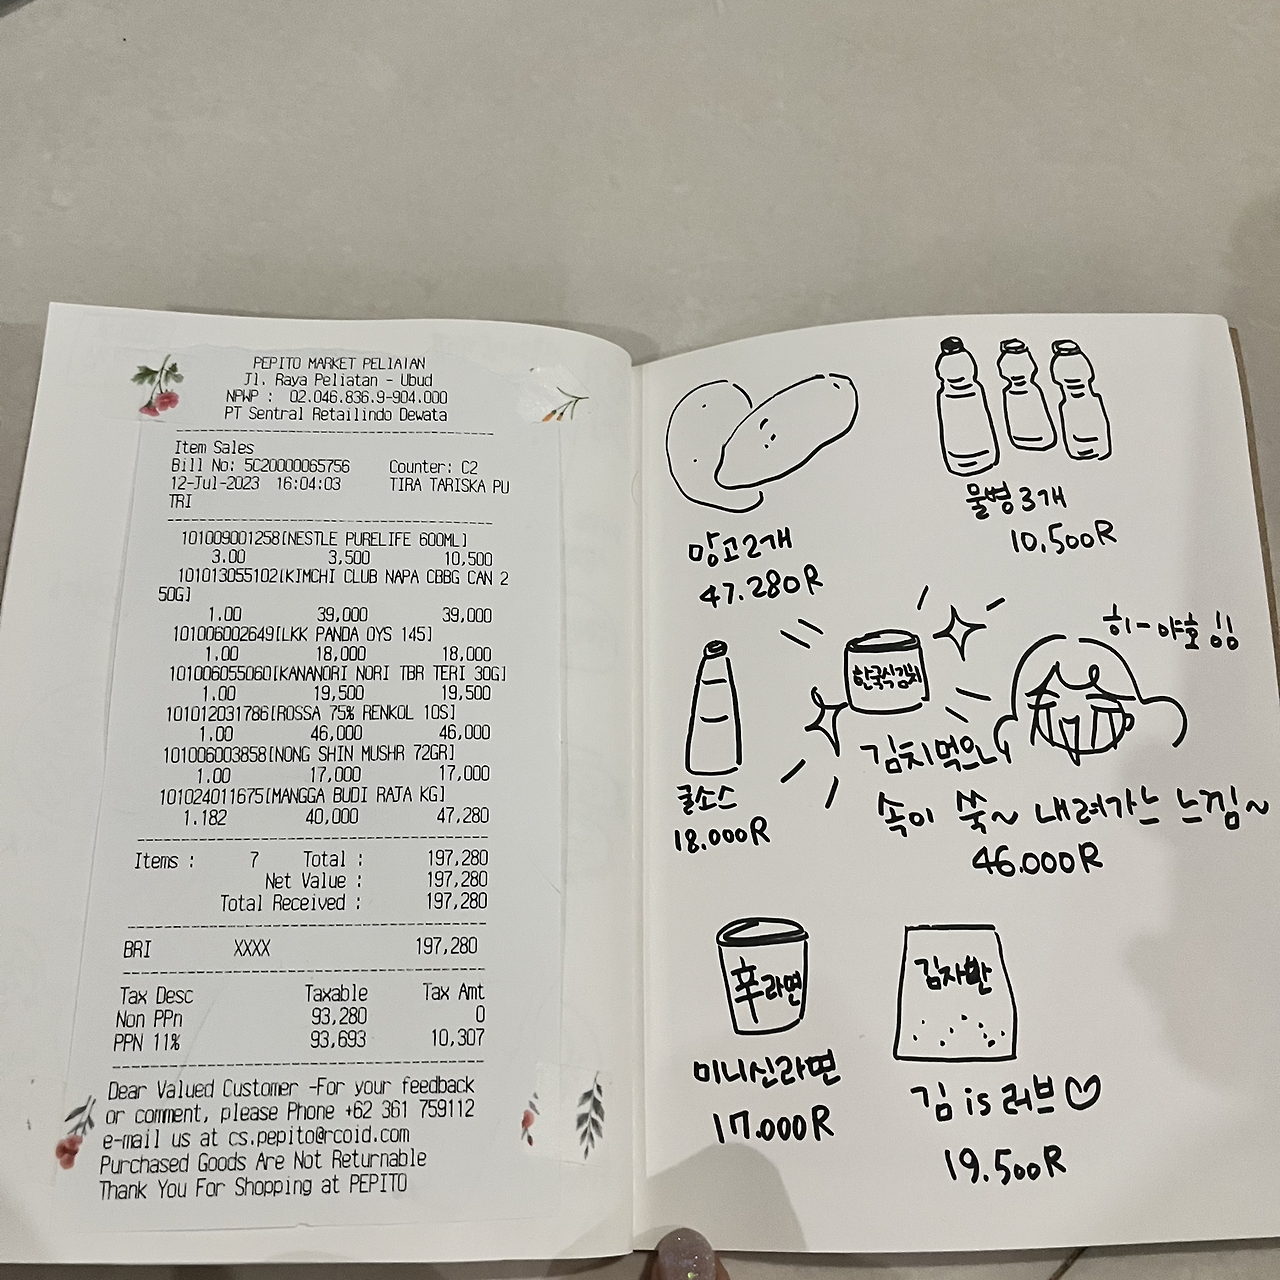 PEPITO MARKET PELIATAN
Jl. Raya Peliatan - Ubud
NPWP : 02.046.836.9-904.000
PT Sentral Retailindo Dewata
Item Sales
Bill No: 5C20000065756 Counter: C2
12-Jul-2023 16:04:03 TIRA TARISKA PU
TRI
101009001258[NESTLE PURELIFE 600ML]
3.00 3,500 10,500
101013055102[KIMCHI CLUB NAPA CBBG CAN 2
50G]
1.00 39,000 39,000
101006002649[LKK PANDA OYS 145]
1.00 18,000 18,000
101006055060[KANANORI NORI TBR TERI 30G]
1.00 19,500 19,500
101012031786[ROSSA 75% RENKOL 10S]
1.00 46,000 46,000
101006003858[NONG SHIN MUSHR 72GR]
1.00 17,000 17,000
101024011675[MANGGA BUDI RAJA KG]
1.182 40,000 47,280
Items : 7 Total : 197,280
Net Value : 197,280
Total Received : 197,280
BRI XXXX 197,280
Tax Desc Taxable Tax Amt
Non PPn 93,280 0
PPN 11% 93,693 10,307
Dear Valued Customer -For your feedback
or comment, please Phone +62 361 759112
e-mail us at cs.pepito@rcoid.com
Purchased Goods Are Not Returnable
Thank You For Shopping at PEPITO
망고2개
47.280R
물병3개
10.500R
굴소스
18.000R
한국식김치
히-야호!!
김치먹으니
속이 쑥~ 내려가는 느낌~
46.000R
辛라면
미니신라면
17.000R
김자반
김 is 러브♡
19.500R